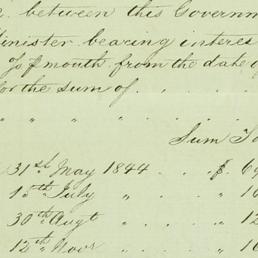 between this Governm
inister bearing interes
% p month from the date of
for the sum of . . . .
" " " " . . .
Sum To
31st May 1844 . . $ 6
15th July " . . . 1
30th Augt " . . . 12
12th Novr " . . . 16